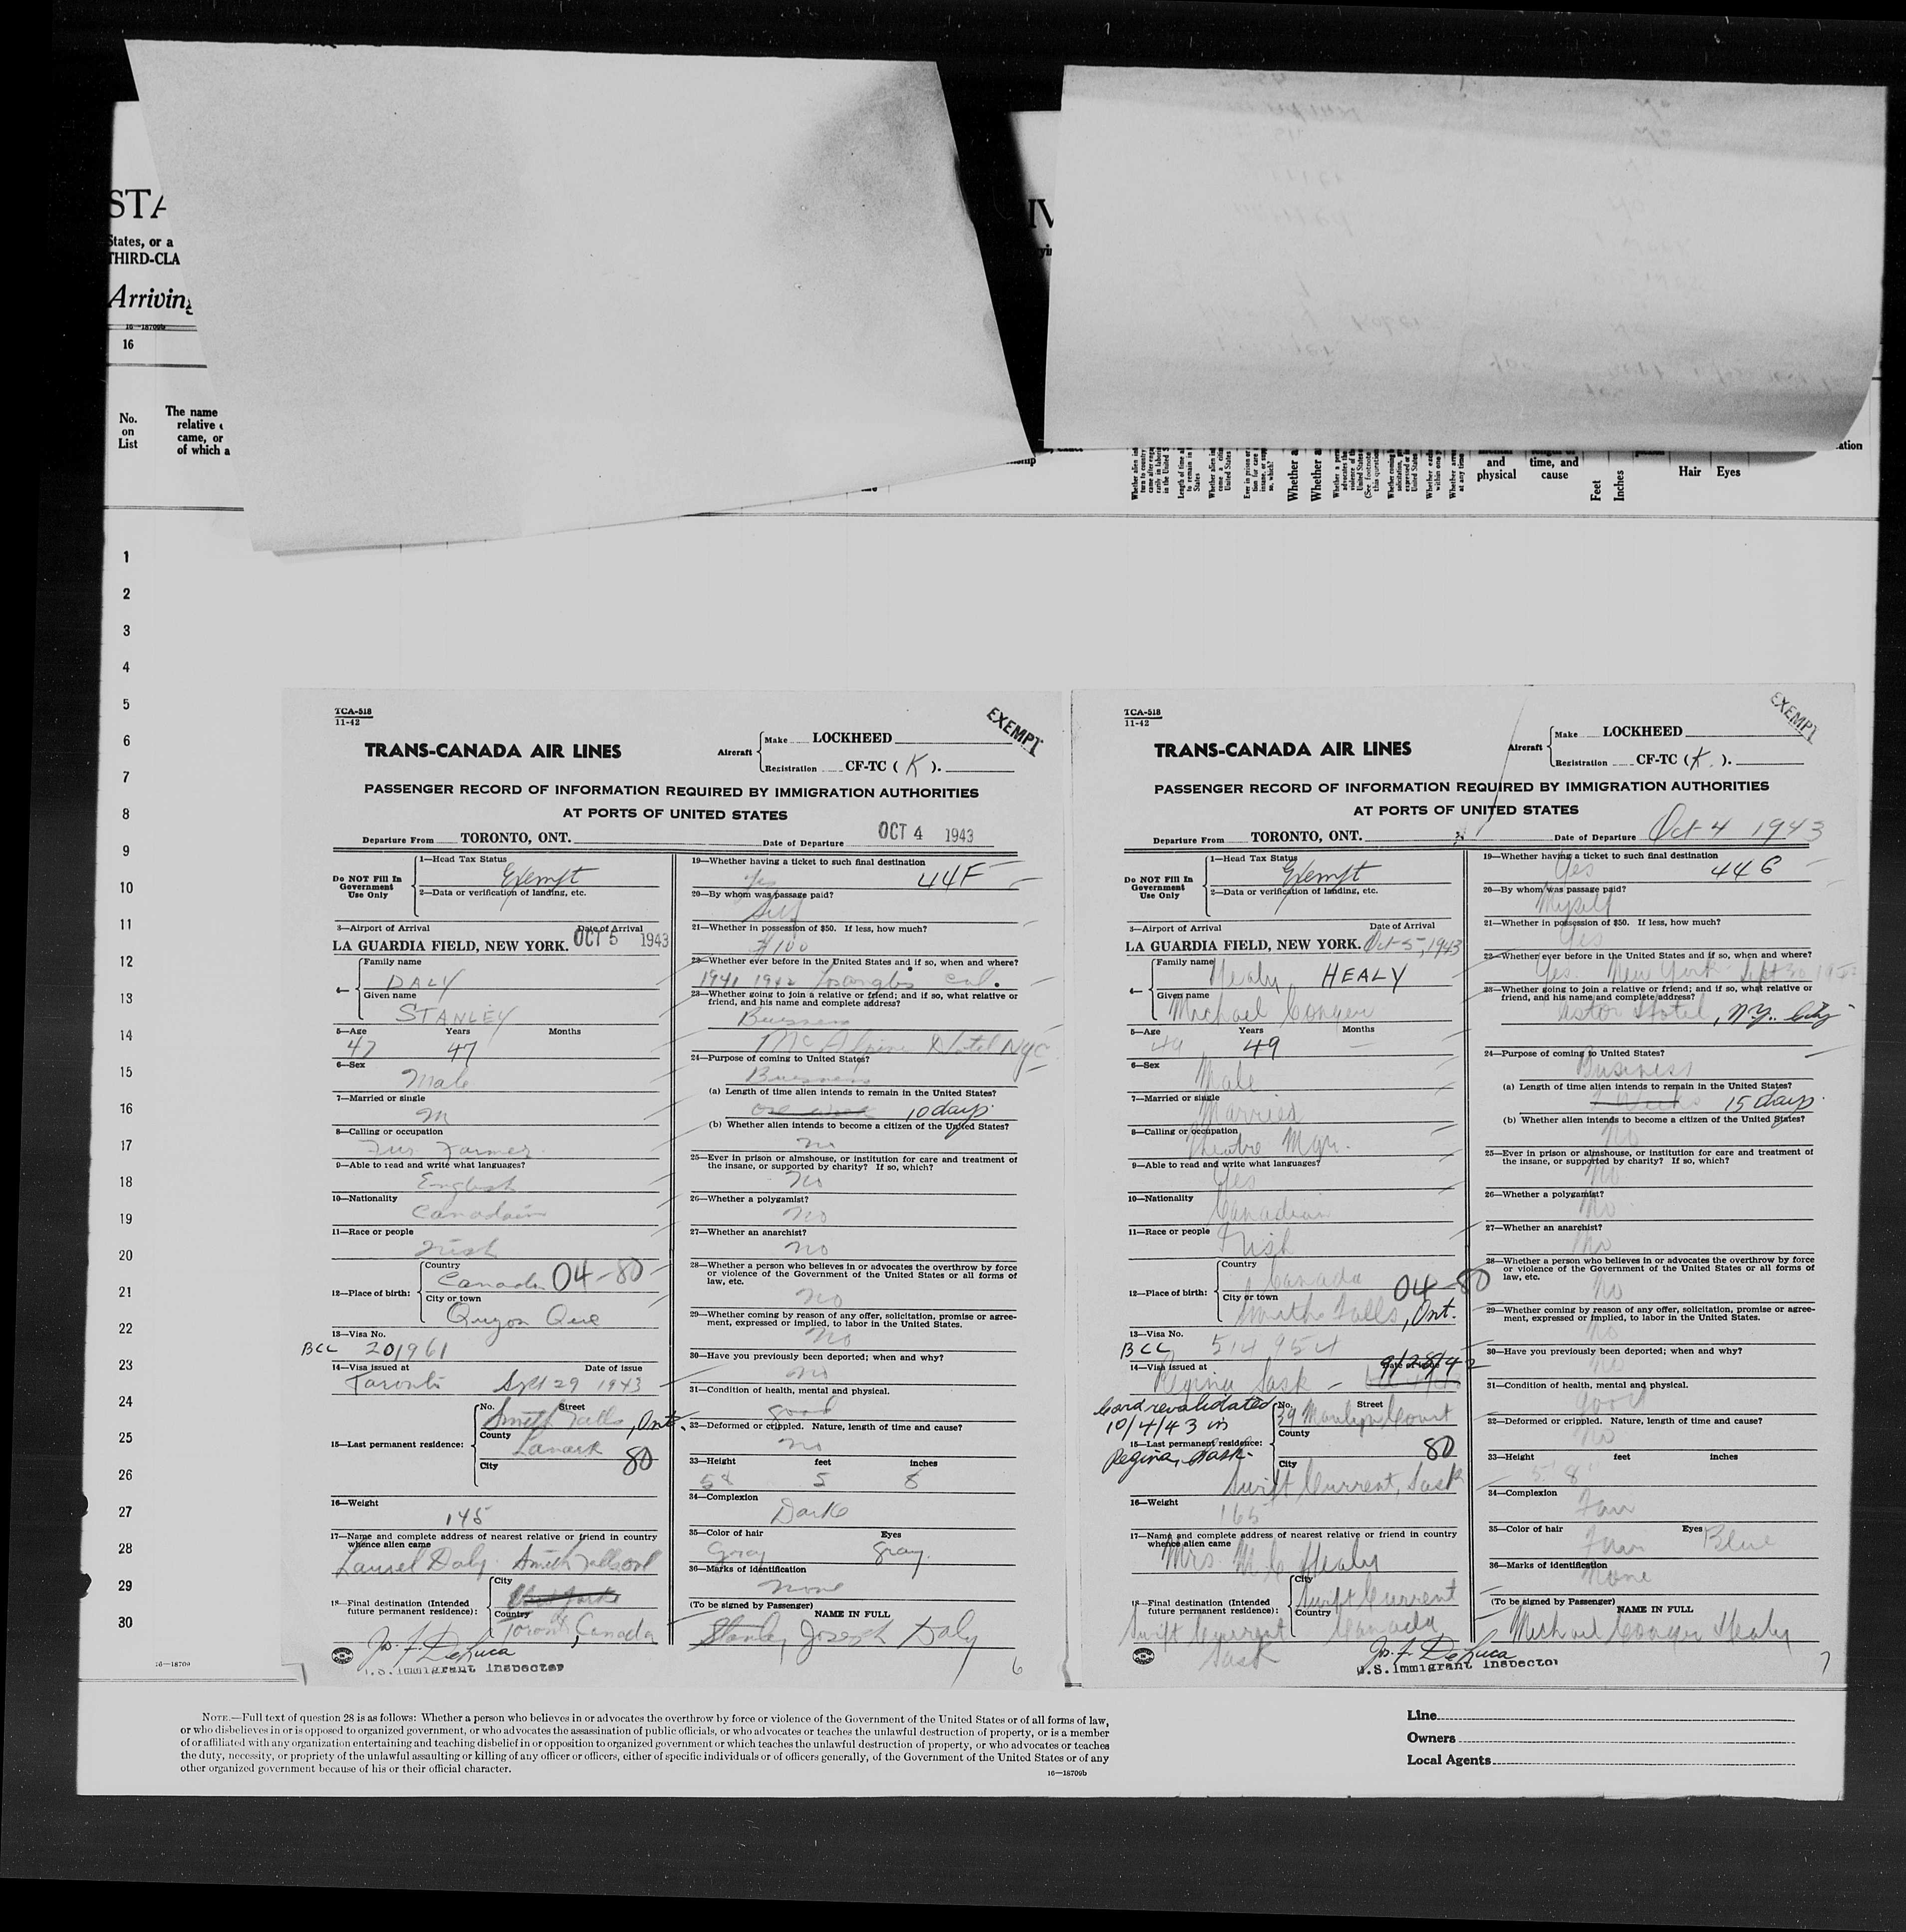 STA
States, or a
THIRD-CLA
Arriving
16—18709b
16
No.
on
List
The name
relative
came, or
of which a
and
physical
time, and
cause
Feet
Inches
Hair Eyes
1
2
3
4
5
6
7
8
9
10
11
12
13
14
15
16
17
18
19
20
21
22
23
24
25
26
27
28
29
30
16—18709
TCA-518
11-42
EXEMPT
TRANS-CANADA AIR LINES
Aircraft
Make LOCKHEED
Registration CF-TC ( K ).
PASSENGER RECORD OF INFORMATION REQUIRED BY IMMIGRATION AUTHORITIES
AT PORTS OF UNITED STATES
Departure From TORONTO, ONT. Date of Departure OCT 4 1943
Do NOT Fill In Government Use Only
1—Head Tax Status
Exempt
2—Data or verification of landing, etc.
3—Airport of Arrival Date of Arrival
LA GUARDIA FIELD, NEW YORK. OCT 5 1943
4— Family name
DALY
Given name
STANLEY
5—Age Years Months
47 47
6—Sex
Male
7—Married or single
M
8—Calling or occupation
Fur Farmer
9—Able to read and write what languages?
English
10—Nationality
Canadain
11—Race or people
Irish
12—Place of birth:
Country
Canada 04-80
City or town
Quyon Que
13—Visa No.
BCC 201961
14—Visa issued at Date of issue
Toronto Sept 29 1943
15—Last permanent residence:
No. Street
Smith Falls, Ont.
County
Lanark 80
City
16—Weight
145
17—Name and complete address of nearest relative or friend in country
whence alien came
Laurel Daly Smith Falls Ont
18—Final destination (Intended
future permanent residence):
City
Country
Toronto, Canada
Jos. F. DeLuca
U.S. Immigrant Inspector
19—Whether having a ticket to such final destination
Yes 44F
20—By whom was passage paid?
Self
21—Whether in possession of $50. If less, how much?
$100
22—Whether ever before in the United States and if so, when and where?
1941 1942 Los angles Cal.
23—Whether going to join a relative or friend; and if so, what relative or
friend, and his name and complete address?
Bussness
McAlpine Hotel NYC
24—Purpose of coming to United States?
Bussness
(a) Length of time alien intends to remain in the United States?
One week 10 days
(b) Whether alien intends to become a citizen of the United States?
No
25—Ever in prison or almshouse, or institution for care and treatment of
the insane, or supported by charity? If so, which?
No
26—Whether a polygamist?
No
27—Whether an anarchist?
No
28—Whether a person who believes in or advocates the overthrow by force
or violence of the Government of the United States or all forms of
law, etc.
No
29—Whether coming by reason of any offer, solicitation, promise or agree-
ment, expressed or implied, to labor in the United States.
No
30—Have you previously been deported; when and why?
No
31—Condition of health, mental and physical.
good
32—Deformed or crippled. Nature, length of time and cause?
No
33—Height feet inches
5 8
34—Complexion
Dark
35—Color of hair Eyes
Gray Gray
36—Marks of identification
None
(To be signed by Passenger) NAME IN FULL
Stanley Joseph Daly
6
TCA-518
11-42
EXEMPT
TRANS-CANADA AIR LINES
Aircraft
Make LOCKHEED
Registration CF-TC ( K ).
PASSENGER RECORD OF INFORMATION REQUIRED BY IMMIGRATION AUTHORITIES
AT PORTS OF UNITED STATES
Departure From TORONTO, ONT. Date of Departure Oct 4 1943
Do NOT Fill In Government Use Only
1—Head Tax Status
Exempt
2—Data or verification of landing, etc.
3—Airport of Arrival Date of Arrival
LA GUARDIA FIELD, NEW YORK. Oct-5, 1943
4— Family name
Healy HEALY
Given name
Michael Conger
5—Age Years Months
49 49 —
6—Sex
Male
7—Married or single
Married
8—Calling or occupation
Theatre Mgr.
9—Able to read and write what languages?
Yes
10—Nationality
Canadian
11—Race or people
Irish
12—Place of birth:
Country
Canada 04-80
City or town
Smith Falls, Ont.
13—Visa No.
BCC 514954
14—Visa issued at Date of issue
Regina Sask — 9/28/42
Card revalidated
10/4/43 in
Regina, Sask.
15—Last permanent residence:
No. Street
39 Court
County
80
City
Swift Current, Sask
16—Weight
165
17—Name and complete address of nearest relative or friend in country
whence alien came
Mrs. M C Healy
18—Final destination (Intended
future permanent residence):
City
Swift Current
Country
Canada
Swift Current
Sask
Jos. F. DeLuca
U.S. Immigrant Inspector
19—Whether having a ticket to such final destination
Yes 44G
20—By whom was passage paid?
Myself
21—Whether in possession of $50. If less, how much?
Yes
22—Whether ever before in the United States and if so, when and where?
Yes. New York Sept 30
23—Whether going to join a relative or friend; and if so, what relative or
friend, and his name and complete address?
Astor Hotel, N.Y. City
24—Purpose of coming to United States?
Business
(a) Length of time alien intends to remain in the United States?
2 Weeks 15 days
(b) Whether alien intends to become a citizen of the United States?
No
25—Ever in prison or almshouse, or institution for care and treatment of
the insane, or supported by charity? If so, which?
No
26—Whether a polygamist?
No
27—Whether an anarchist?
No
28—Whether a person who believes in or advocates the overthrow by force
or violence of the Government of the United States or all forms of
law, etc.
No
29—Whether coming by reason of any offer, solicitation, promise or agree-
ment, expressed or implied, to labor in the United States.
No
30—Have you previously been deported; when and why?
No
31—Condition of health, mental and physical.
good
32—Deformed or crippled. Nature, length of time and cause?
No
33—Height feet inches
5' 8"
34—Complexion
Fair
35—Color of hair Eyes
Fair Blue
36—Marks of identification
None
(To be signed by Passenger) NAME IN FULL
Michael Conger Healy
7
NOTE.—Full text of question 28 is as follows: Whether a person who believes in or advocates the overthrow by force or violence of the Government of the United States or of all forms of law,
or who disbelieves in or is opposed to organized government, or who advocates the assassination of public officials, or who advocates or teaches the unlawful destruction of property, or is a member
of or affiliated with any organization entertaining and teaching disbelief in or opposition to organized government or which teaches the unlawful destruction of property, or who advocates or teaches
the duty, necessity, or propriety of the unlawful assaulting or killing of any officer or officers, either of specific individuals or of officers generally, of the Government of the United States or of any
other organized government because of his or their official character.
16—18709b
Line
Owners
Local Agents